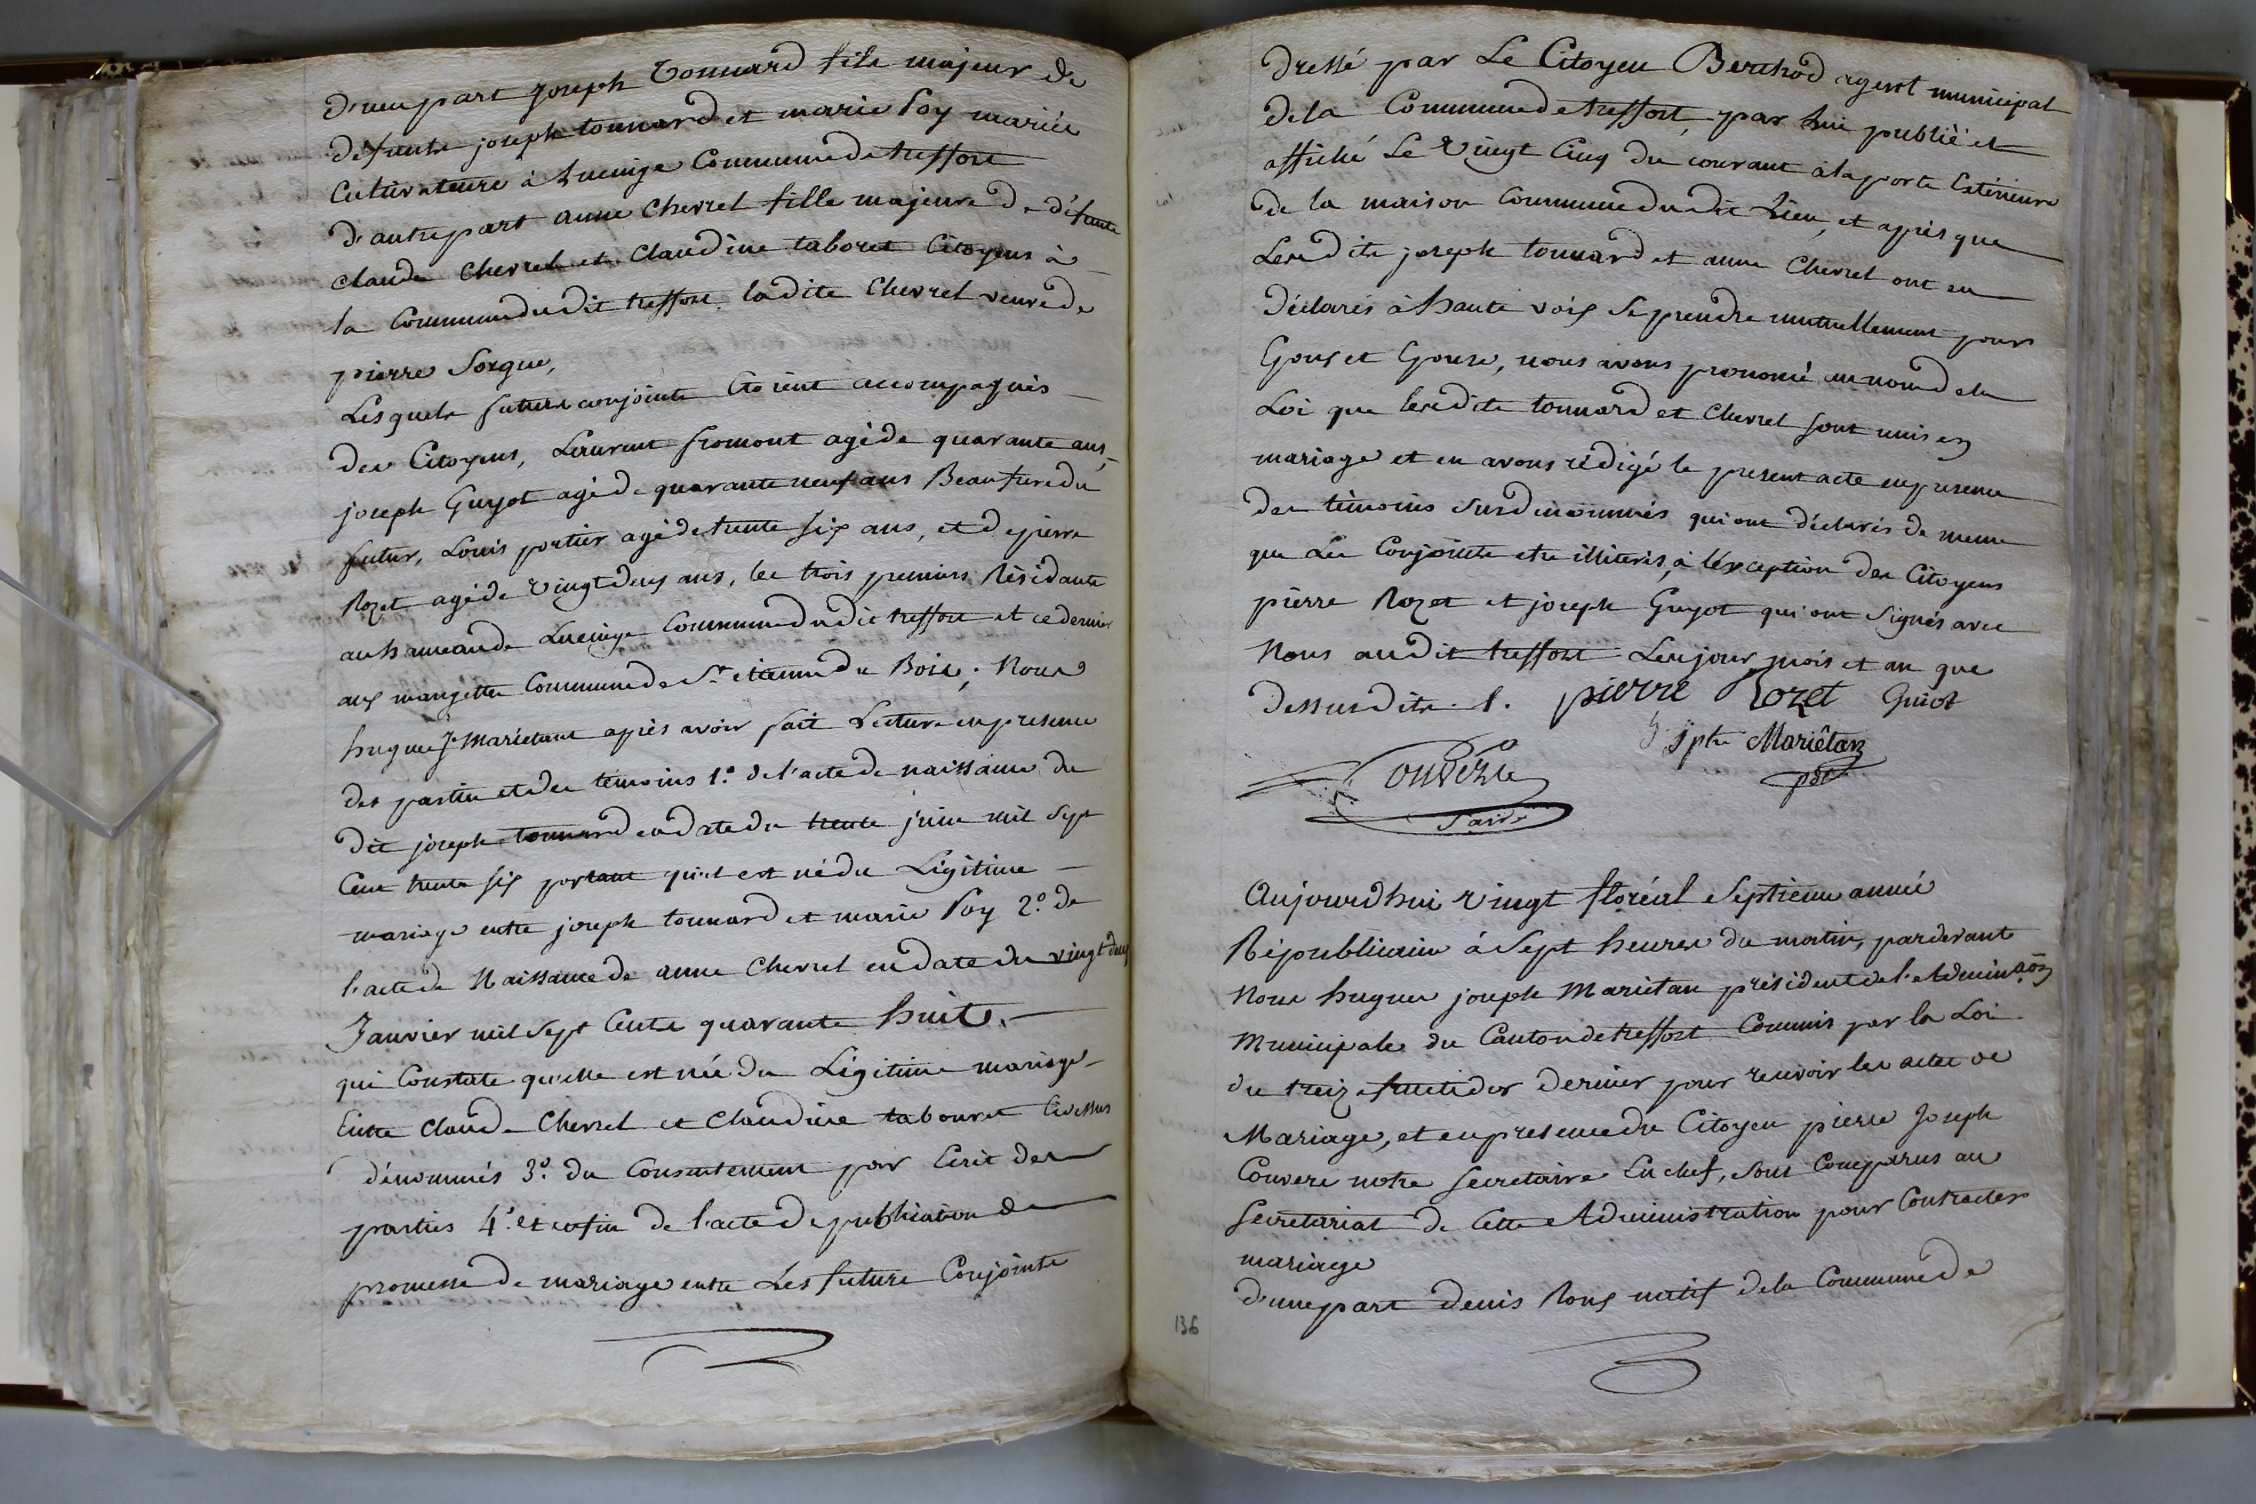 d'une part joseph Tonnard fils majeur de
défunts joseph tonnard et marie Poy mariés
Cultivateurs à Lucinge Commune de treffort
d'autre part anne Chevrel fille majeure de défunts
claude Chevrel et Claudine taboret Citoyens à
la Commune du dit treffort, ladite Chevrel veuve de
pierre Sorgue,
Lesquels futurs conjoints étoient accompagnés
des Citoyens, Laurent fromont agé de quarante ans,
joseph Guyot agé de quarante neuf ans Beaufrere du
futur, Louis portier agé de trente six ans, et de pierre
Rozet agé de vingt deux ans, les trois premiers Résidants
au hameau de Lucinge Commune du dit treffort et ce dernier
aux mangettes Commune de St. etienne du Bois; Nous
hugues Jh Mariétant après avoir fait Lecture en presence
des parties et des temoins 1.° de l'acte de naissance du
dit joseph tonnard en date du trente juin mil sept
Cent trente six portant qu'il est né du Légitime
mariage entre joseph tonnard et marie Poy 2.° de
l'acte de Naissance de anne Chevrel en date du vingt deux
Janvier mil sept Cents quarante huit,
qui Constate qu'elle est née du Légitime mariage
Entre Claude Chevrel et Claudine tabouret Cidessus
dénommés 3.° du Consentement par Ecrit des
parties 4.° et enfin de l'acte de publication de
promesse de mariage entre Les futurs Conjoints
dressé par Le Citoyen Berthod agent municipal
de la Commune de treffort, par lui publié et
affiché Le vingt Cinq du courant à la porte Extérieure
de la maison Commune du dit Lieu, et après que
Lesdits joseph tonnard et anne Chevrel ont eu
déclarés à haute voix se prendre mutuellement pour
Epoux et Epouse, nous avons prononcé au nom de la
Loi que lesdits tonnard et Chevrel sont unis en
mariage et en avons rédigé le present acte en presence
des témoins susdénommés qui ont déclarés de meme
que Les Conjoints etre illiterés, à l'exception des Citoyens
pierre Rozet et joseph Guyot qui ont signés avec
Nous audit treffort Les jour, mois et an que
dessus dits. /. pierre Rozet Guiot
jph Mariétan
pdt
Convêrse
Aujourd'hui vingt floréal septieme année
Républicaine à sept heures du matin, pardevant
Nous hugues joseph Mariétan président de l'Adminaôn
Municipale du Canton de treffort Commis par la Loi
du treize fructidor dernier pour recevoir les actes de
Mariage, et en presence du Citoyen pierre Joseph
Convers notre Secretaire En chef, sont Comparus au
Secretariat de Cette Administration pour Contracter
mariage
d'une part denis Roux natif de la Commune de
136